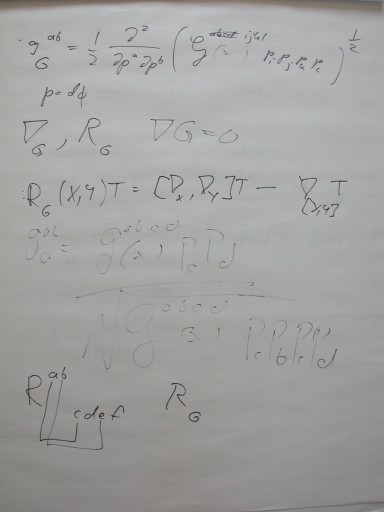 g_G^{ab} = 1/2 ∂²/∂pᵃ∂pᵇ (G^{ijkl}(x) p_i p_j p_k p_l)^{1/2}
p = dϕ
∇_G , R_G ∇G = 0
R_G (X,Y)T = [∇_X, ∇_Y]T − ∇_{[X,Y]} T
g_G^{ab} = G^{abcd}(x) p_c p_d
√G^{abcd}(x) p_a p_b p_c p_d
R^{ab}_{cdef} R_G